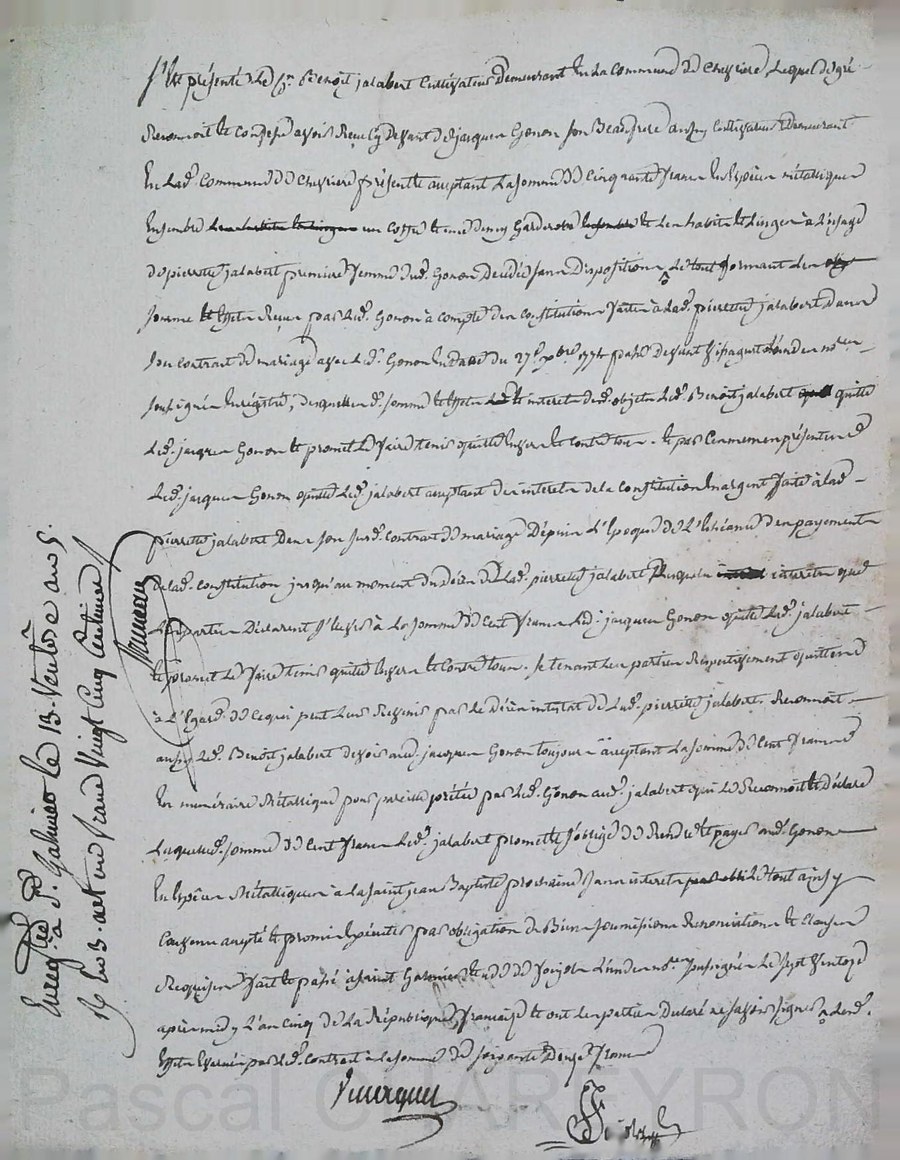 S'est présenté le Cn. Benoit jalabert Cultivateur Demeurant En La Commune de Chevriere, Lequel de gré
Reconnoit et Confesse avoir Reçu Cy Devant de jacques Gonon son Beaufrere aussy Cultivateur Demeurant
En Lad. Commune de Chevriere présent et aceptant La somme de Cinquante francs En Espèces métalliques
Ensemble un Coffre et une Garderobe et Les habits et Linges à L'usage
de pierrette jalabert premiere femme dud. Gonon Decedée sans Disposition, Le tout formant Les
somme et Effets Reçus par Led. Gonon à compte des Constitutions faites à Lad. pierrette jalabert Dans
son Contrat de mariage avec Led. Gonon En date du 27e xbre 1774 passé Devant
soussigné Enrégistré, desquelles d. somme et Effets et interets des d. objets Led. Benoit jalabert quitte
Led. jacques Gonon et promet Le faire tenir quitte Envers et Contre tous. Et par Ces mêmes présentes
Led. jacques Gonon quitte Led. jalabert aceptant des interets de la Constitution En argent faite à Lad.
pierrette jalabert Dans son susd. Contrat de mariage Depuis L'Epoque de L'Echéance des payements
de lad. Constitution jusqu'au moment du décès de Lad. pierrette jalabert Lesquels interets que
Les parties Déclarent S'Elever à La somme de Cent francs Led. jacques Gonon quitte Led. jalabert
Et promet Le faire tenir quitte Envers et Contre tous. Se tenant Les parties Respectivement quittes
à L'Egard de Ce qui peut Leur Revenir par Le décès intestat de Lad. pierrette jalabert. Reconnoit
aussy Led. Benoit jalabert devoir aud. jacques Gonon toujours aceptant La somme de Cent francs
En numéraire Métallique pour pareille prêtée par Led. Gonon aud. jalabert qui Le Reconnoit et Déclare
Laquelle d. somme de Cent francs Led. jalabert promet et s'oblige de Rendre et payer aud. Gonon
En Espèces Métalliques à La Saint jean Baptiste prochaine sans interets Le tout ainsy
Convenu accepté et promis Exécuter par obligation de Biens soumissions Renonciations et Clauses
Requises fait et passé à Saint Galmier Etude de L'un des nres. soussignés Le Sept Ventose
après midy L'an Cinq de La République française et ont Les parties Declaré ne savoir signer Lesd.
Effets Evalués par Led. Contrat à La somme de soixante Douze francs
Enregistré à St. Galmier le 13 Ventôse an 5.